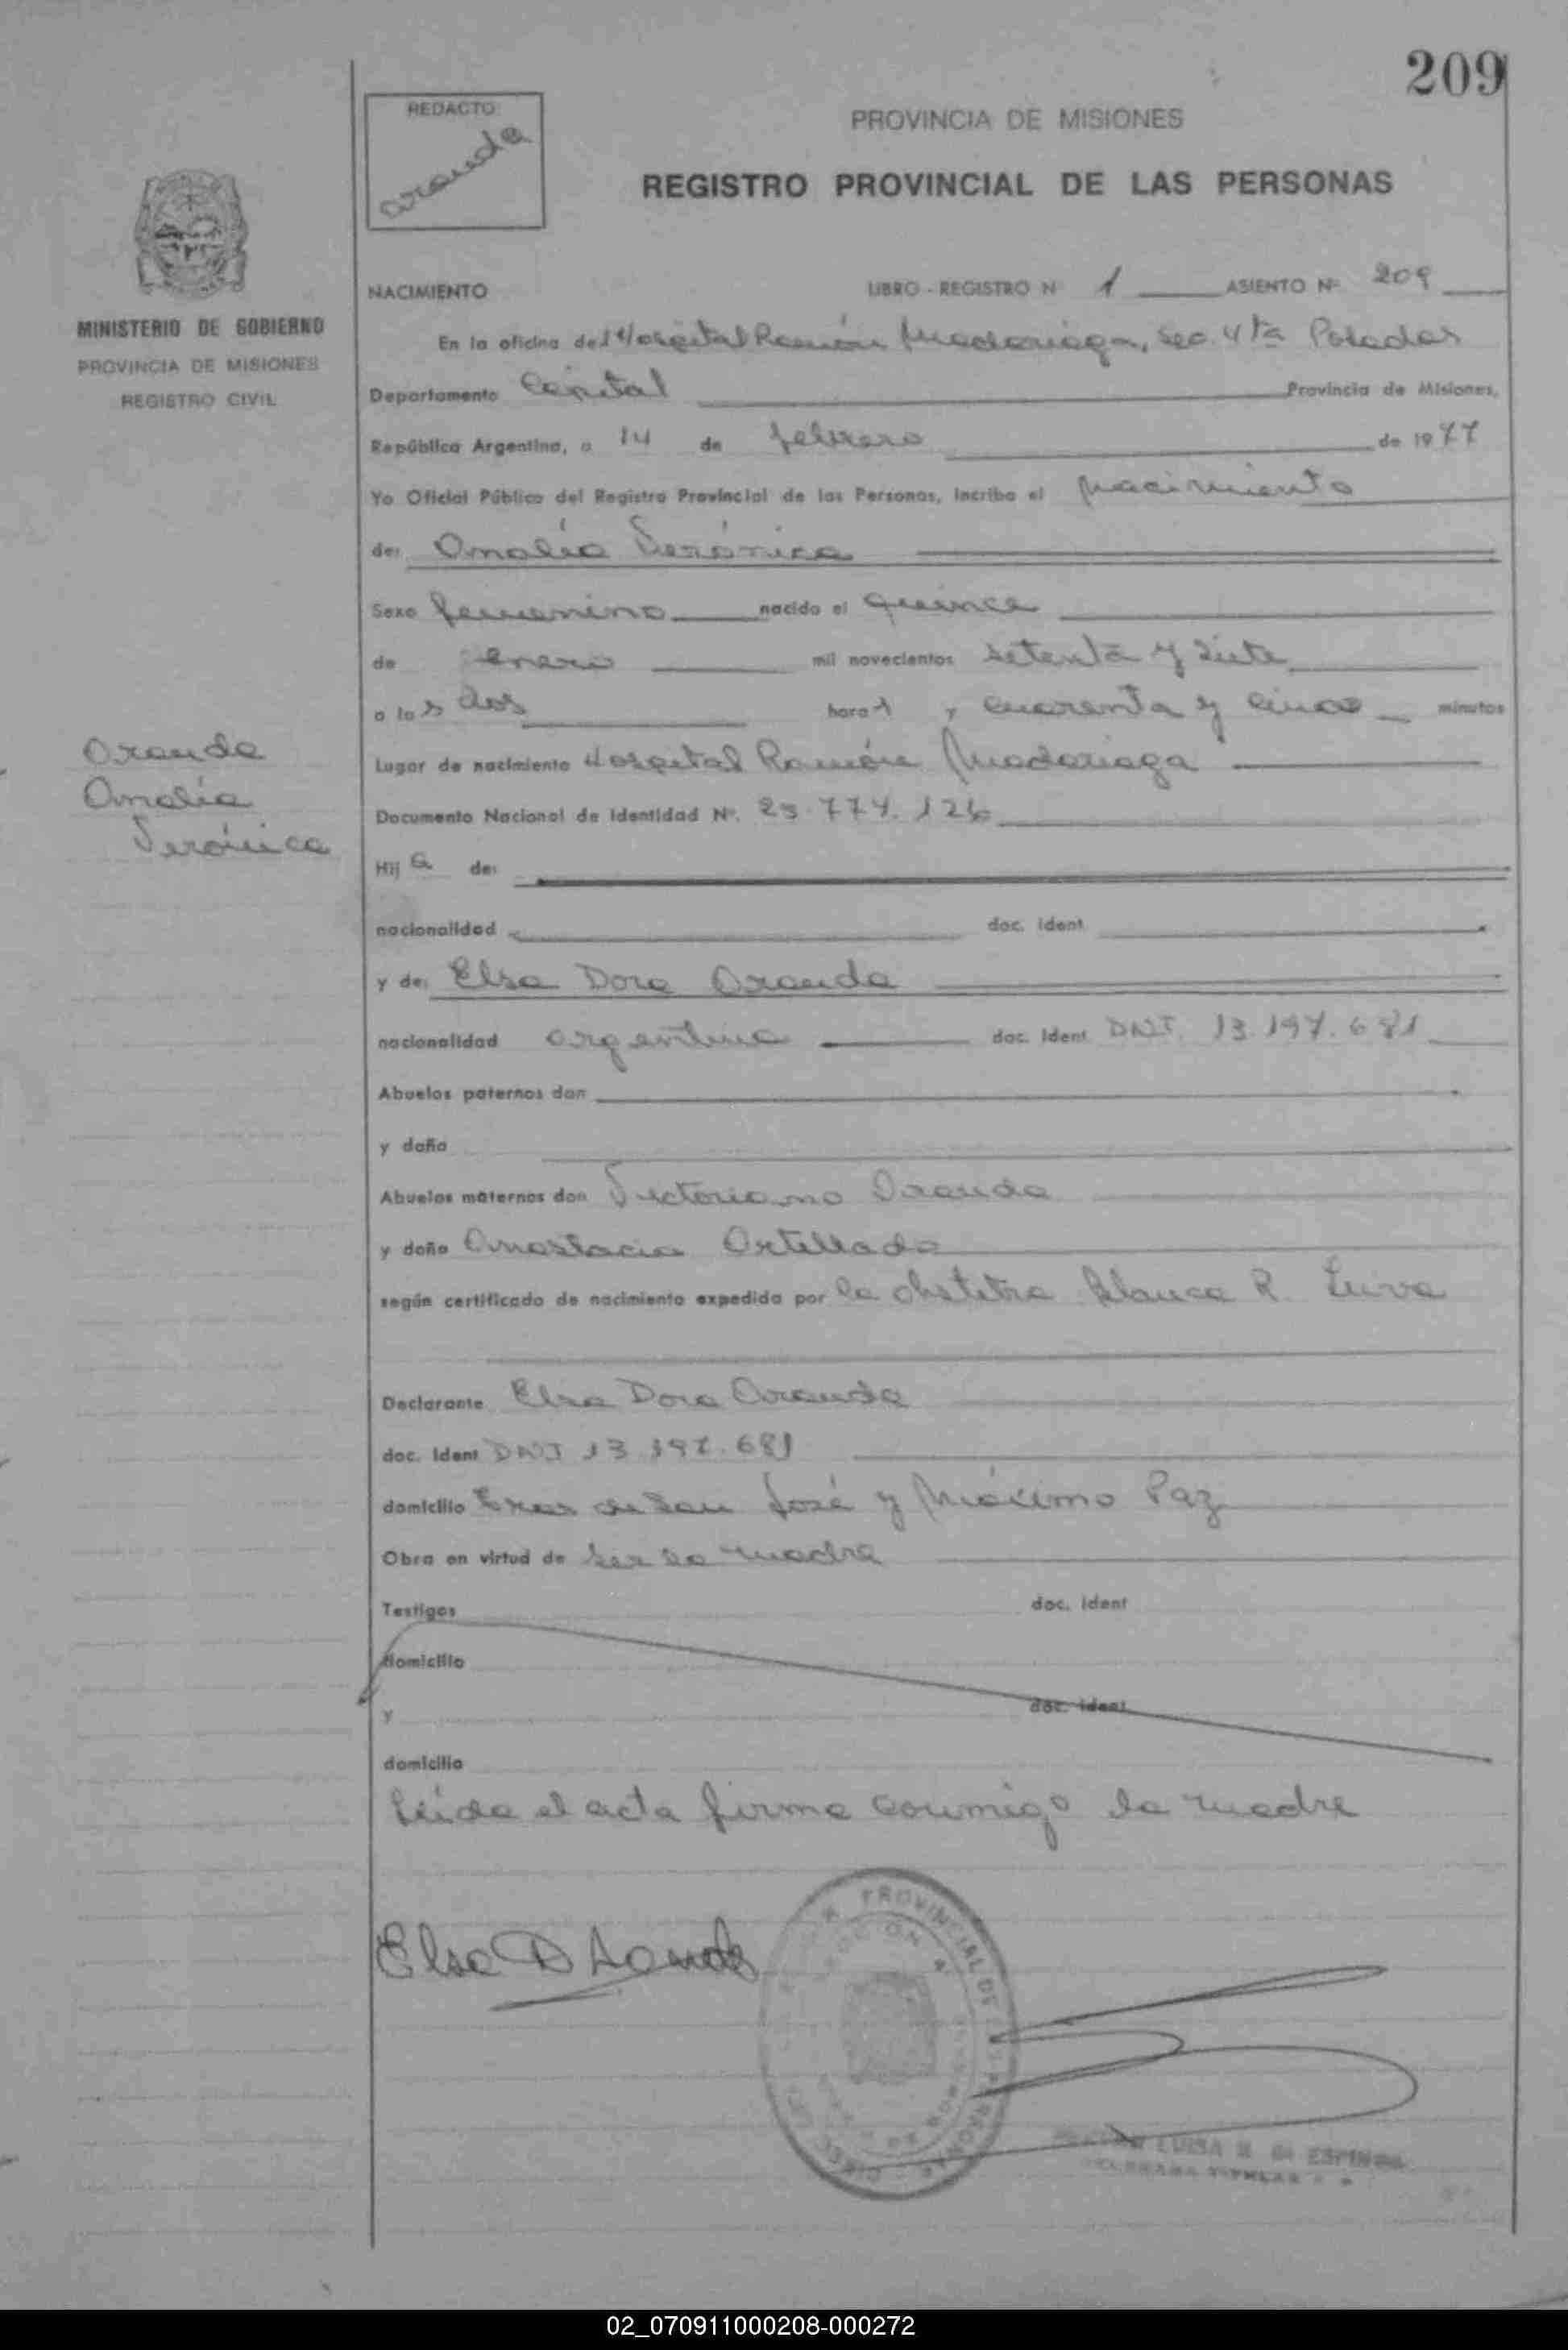 209
REDACTO
Aranda
PROVINCIA DE MISIONES
REGISTRO PROVINCIAL DE LAS PERSONAS
MINISTERIO DE GOBIERNO
PROVINCIA DE MISIONES
REGISTRO CIVIL
NACIMIENTO LIBRO - REGISTRO N 1 ASIENTO Nº 209
En la oficina del Hospital Ramón Madariaga, Sec. 4ta Posadas
Departamento Capital Provincia de Misiones,
República Argentina, a 14 de febrero de 1977
Yo Oficial Público del Registro Provincial de las Personas, Incribo el nacimiento
de: Amalia Verónica
Sexo femenino nacido el quince
de enero mil novecientos setenta y siete
a las dos horas y cuarenta y cinco minutos
Aranda
Amalia
Verónica
Lugar de nacimiento Hospital Ramón Madariaga
Documento Nacional de Identidad Nº. 25.774.126
Hija de:
nacionalidad doc. ident
y de: Elsa Dora Aranda
nacionalidad argentina doc. Ident DNI. 13.197.681
Abuelos paternos don
y doña
Abuelos maternos don Victoriano Aranda
y doña Anastacia Ortellado
según certificado de nacimiento expedido por la obstetra Blanca R.
Declarante Elsa Dora Aranda
doc. Ident DNI 13.197.681
domicilio de San José y Máximo Paz
Obra en virtud de ser la madre
Testigos doc. ident
domicilio
y doc. ident
domicilio
Leída el acta firma conmigo la madre
Elsa D Aranda
PROVINCIAL DE
LUISA ESPINOSA
TITULAR
02_070911000208-000272